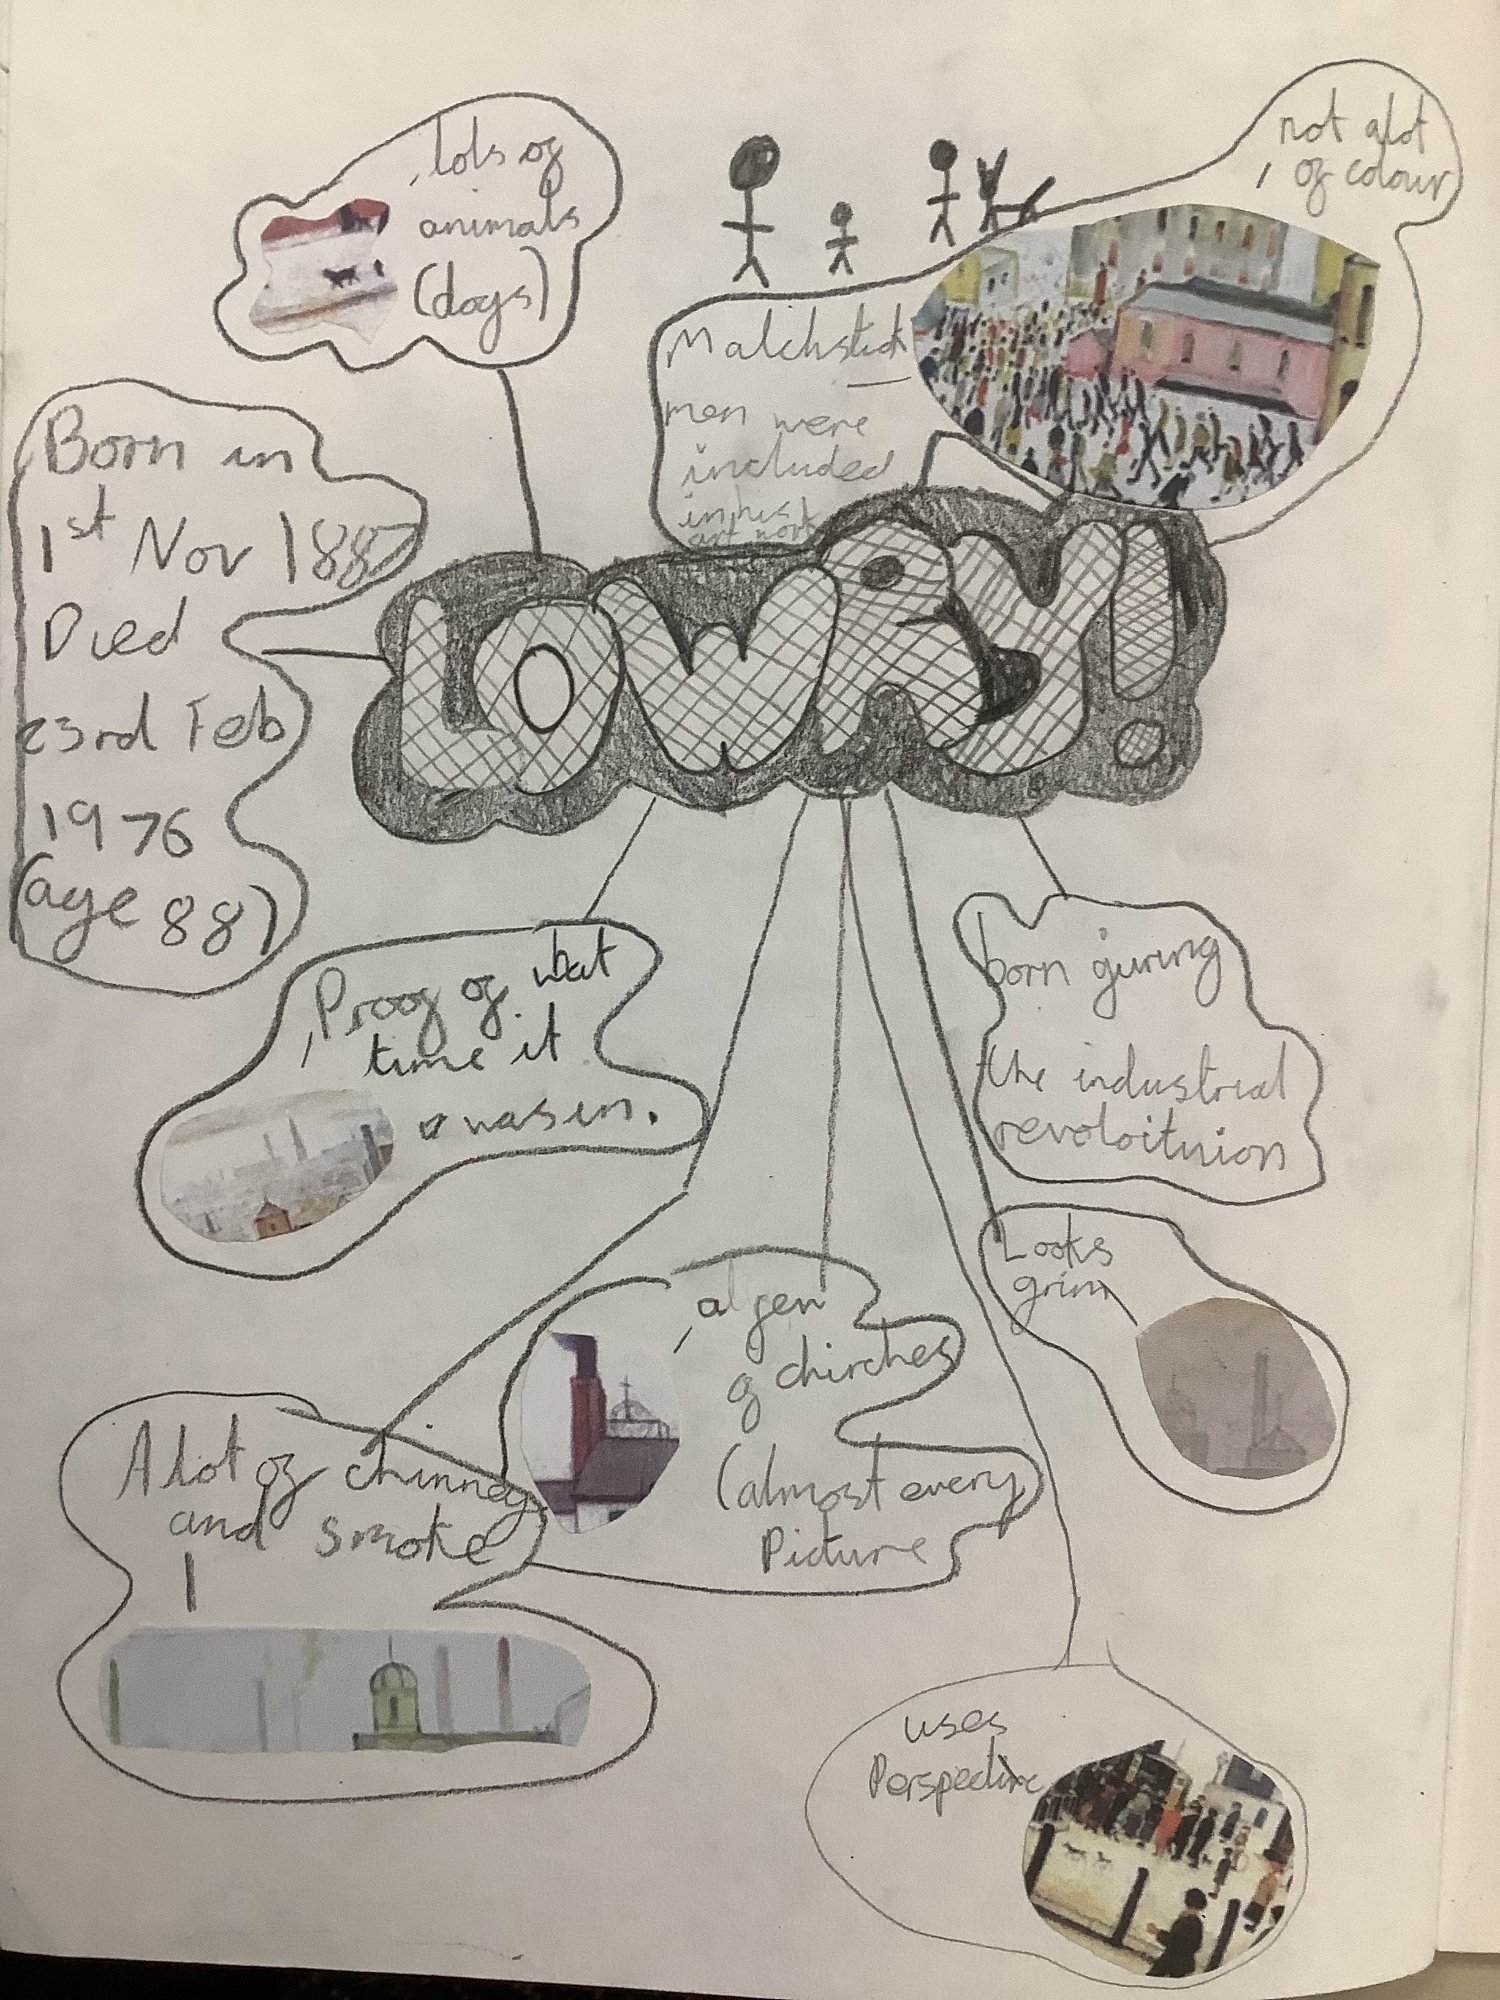 lots of
animals
(dogs)
not alot
of colour
Matchstick
men were
included
in his
art work
Born in
1st Nov 1887
Died
23rd Feb
1976
(age 88)
LOWRY!
Proof of what
time it
was in.
born during
the industrial
revoloituion
Looks
grim
a few
of chirches
(almost every
Picture
A lot of chinney
and smoke
uses
Perspective